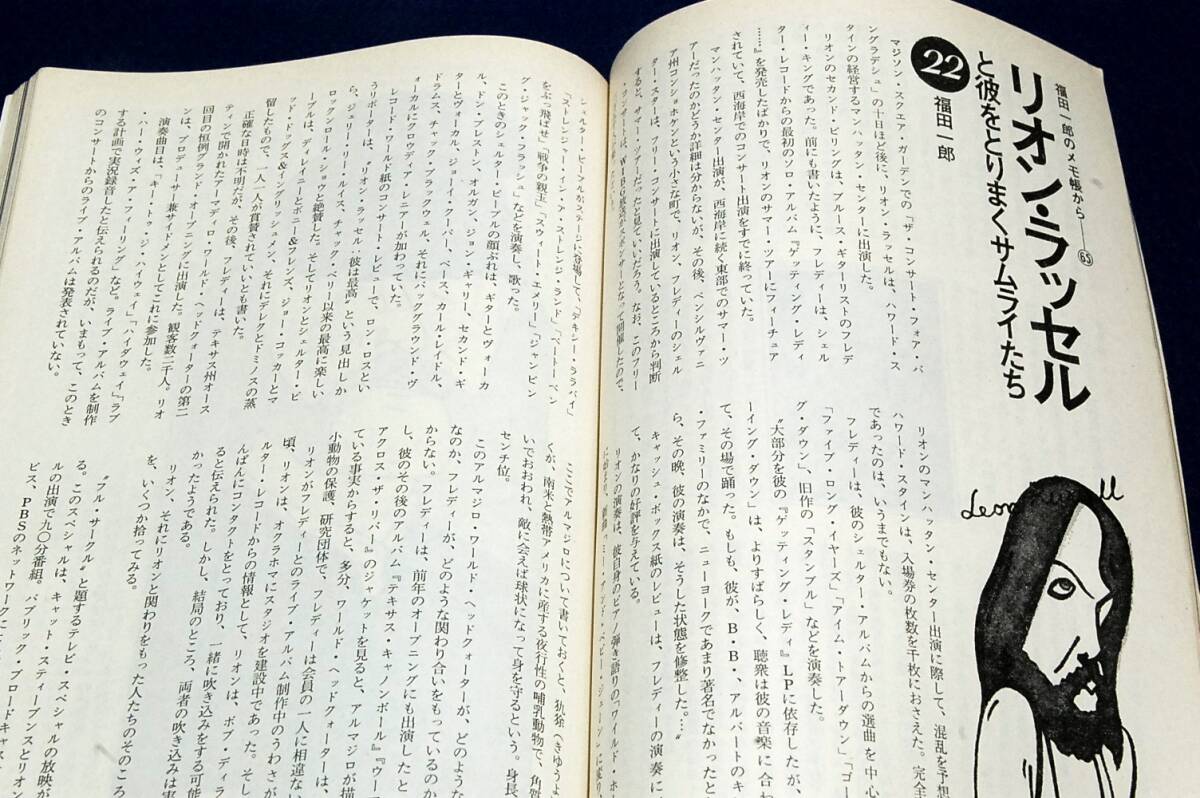 福田一郎のメモ帳から——65
リオン・ラッセル
と彼をとりまくサムライたち
22
福田一郎
マジソン・スクエア・ガーデンでの「ザ・コンサート・フォア・バ
ングラデシュ」の十日ほど後に、リオン・ラッセルは、ハワード・ス
タインの経営するマンハッタン・センターに出演した。
リオンのセカンド・ビリングは、ブルース・ギターリストのフレデ
ィー・キングであった。前にも書いたように、フレディーは、シェル
ター・レコードからの最初のソロ・アルバム『ゲッティング・レディ
……』を発売したばかりで、リオンのサマー・ツアーにフィーチュア
されていて、西海岸でのコンサート出演をすでに終っていた。
マンハッタン・センター出演が、西海岸に続く東部でのサマー・ツ
アーだったのかどうか詳細は分からないが、その後、ペンシルヴァニ
ア州コンショホケンという小さな町で、リオン、フレディーのシェル
ター・スターは、フリー・コンサートに出演しているところから判断
すると、サマー・ツアーだったと見ていいだろう。なお、このフリー
・コンサートは、WIBG放送がスポンサーとなって開催したので、
リオンのマンハッタン・センター出演に際して、混乱を予想
ハワード・スタインは、入場券の枚数を千枚におさえた。完全
であったのは、いうまでもない。
フレディーは、彼のシェルター・アルバムからの選曲を中心
「ファイブ・ロング・イヤーズ」「アイム・トアーダウン」「ゴー
グ・ダウン」、旧作の「スタンブル」などを演奏した。
〝大部分を彼の『ゲッティング・レディ』LPに依存したが、
ーイング・ダウン」は、よりすばらしく、聴衆は彼の音楽に合わ
て、その場で踊った。もしも、彼が、B・B・、アルバートのキ
・ファミリーのなかで、ニューヨークであまり著名でなかったと
ら、その晩、彼の演奏は、そうした状態を修整した。…〟
キャッシュ・ボックス紙のレビューは、フレディーの演奏に
て、かなりの好評を与えている。
リオンの演奏は、彼自身のピアノ弾き語りの「ワイルド・ホー
シェルター・ピープルがステージに登場して、「デキシー・ララバイ」
「ストレンジャー・イン・ア・ストレンジ・ランド」「ベートーベン
をぶっ飛ばせ」「戦争の親玉」「スウィート・エミリー」「ジャンピン
グ・ジャック・フラッシュ」などを演奏し、歌った。
このときのシェルター・ピープルの顔ぶれは、ギターとヴォーカ
ル、ドン・プレストン、オルガン、ジョン・ギャリー、セカンド・ギ
ターとヴォーカル、ジョーイ・クーパー、ベース、カール・レイドル、
ドラムス、チャック・ブラックウェル、それにバックグラウンド・ヴ
ォーカルにクロウディア・レニアーが加わっていた。
レコード・ワールド紙のコンサート・レビューで、ロン・ロスとい
うリポーターは、〝リオン・ラッセル・彼は最高〟という見出しか
ら、ジェリー・リー・ルイス、チャック・ベリー以来の最高に楽しい
ロックンロール・ショウと絶賛した。そしてリオンとシェルター・ピ
ープルは、デレイニーとボニー&フレンズ、ジョー・コッカーとマ
ッド・ドッグス&イングリッシュメン、それにデレクとドミノスの蒸
留したもので、一人一人が賞賛されていいとも書いた。
正確な日時は不明だが、その後、フレディーは、テキサス州オース
ティンで開かれたアーマディロ・ワールド・ヘッドクォーターの第二
回目の恒例グランド・オープニングに出演した。観客数二千人。リオ
ンは、プロデューサ兼サイドメンとしてこれに参加した。
演奏曲目は、「キー・トゥ・ジ・ハイウェイ」「ハイダウェイ」「ラブ
・ハー・ウィズ・ア・フィーリング」など。ライブ・アルバムを制作
する計画で実況録音したと伝えられるのだが、いまもって、このとき
のコンサートからのライブ・アルバムは発表されていない。
ここでアルマジロについて書いておくと、犰狳(きゅうよ
くが、南米と熱帯アメリカに産する夜行性の哺乳動物で、角質
いでおおわれ、敵に会えば球状になって身を守るという。身長
センチ位。
このアルマジロ・ワールド・ヘッドクォーターが、どのような
なのか、フレディーが、どのような関わり合いをもっているのか
からない。フレディーは、前年のオープニングにも出演したと
し、彼のその後のアルバム『テキサス・キャノンボール』『ウー
アクロス・ザ・リバー』のジャケットを見ると、アルマジロが描
ている事実からすると、多分、ワールド・ヘッドクォーターは、
小動物の保護、研究団体で、フレディーは会員の一人に相違ない
リオンがフレディーとのライブ・アルバム制作中のうわさが
頃、リオンは、オクラホマにスタジオを建設中であった。そし
ルター・レコードからの情報として、リオンは、ボブ・ディ
んぱんにコンタクトをとっており、一緒に吹き込みをする可能
ると伝えられた。しかし、結局のところ、両者の吹き込みは実
かったようである。
リオン、それにリオンと関わりをもった人たちのそのころ
を、いくつか拾ってみる。
〝アル・サークル〟と題するテレビ・スペシャルの放映が
る。このスペシャルは、キャット・スティーブンスとリオン
ルの出演で九〇分番組。パブリック・ブロードキャス
ビス、PBSのネットワークに